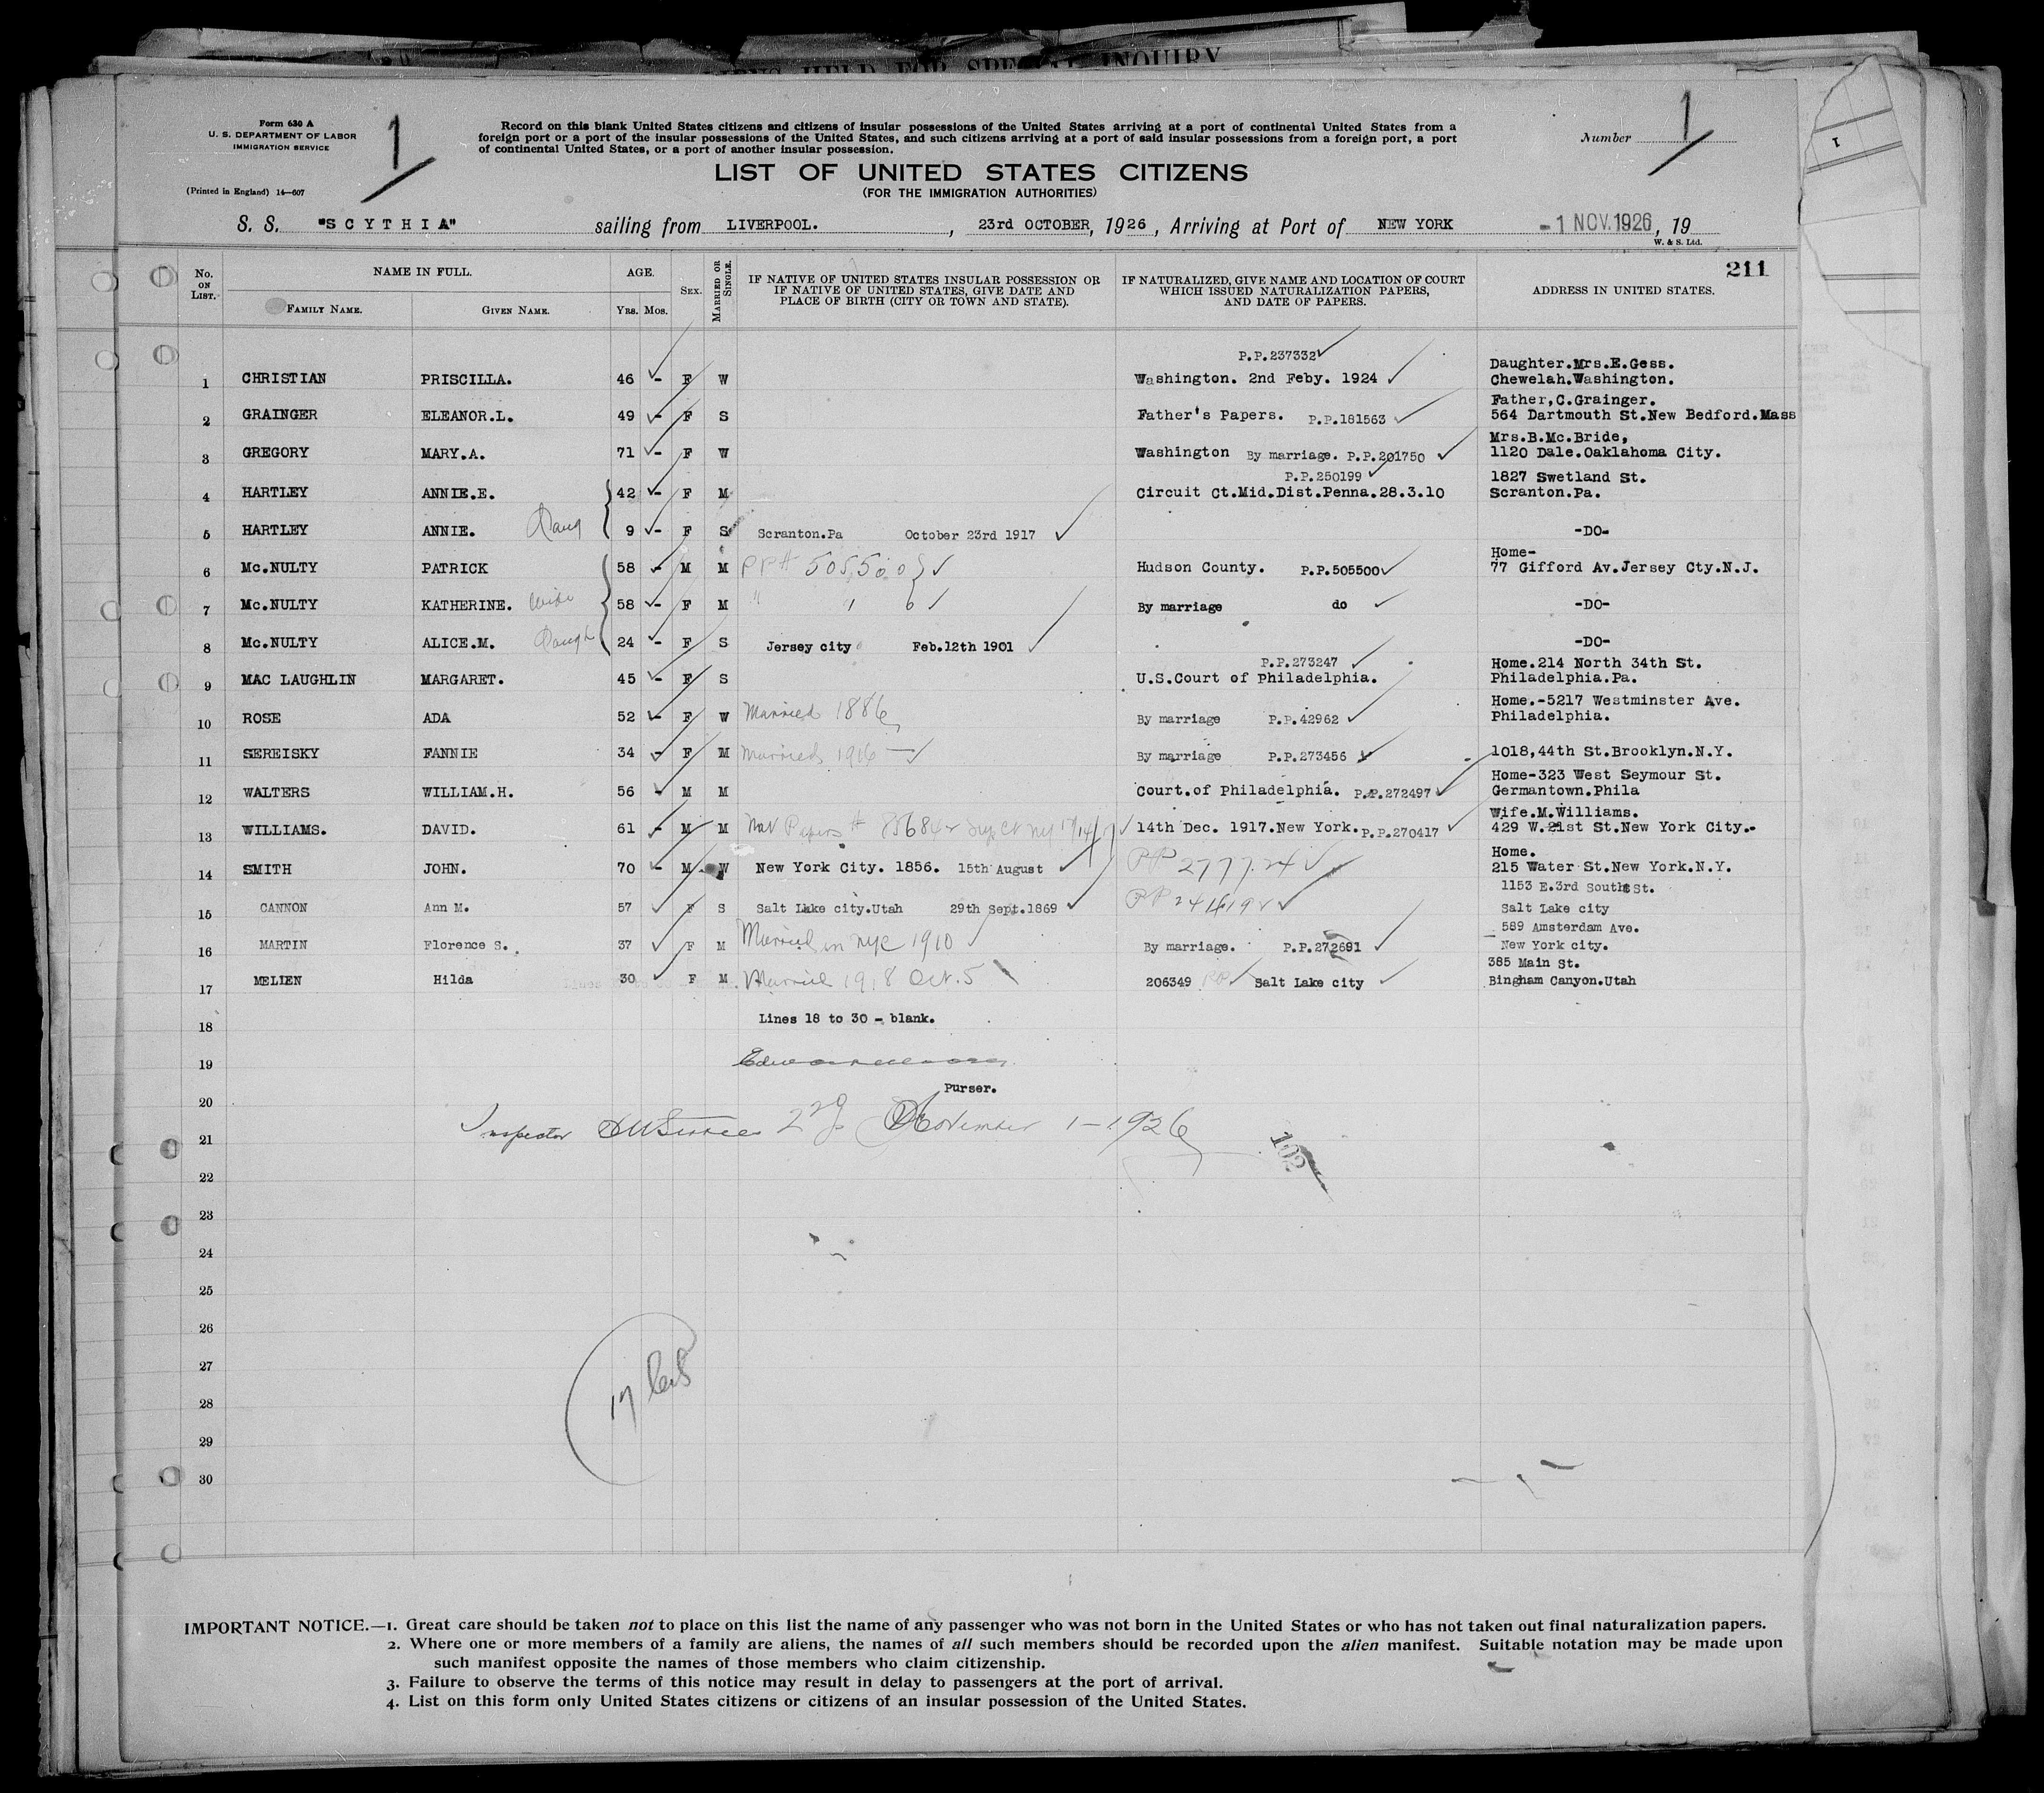 ALIENS HELD FOR SPECIAL INQUIRY
Form 630 A
U. S. DEPARTMENT OF LABOR
IMMIGRATION SERVICE
(Printed in England) 14—607
1
Record on this blank United States citizens and citizens of insular possessions of the United States arriving at a port of continental United States from a
foreign port or a port of the insular possessions of the United States, and such citizens arriving at a port of said insular possessions from a foreign port, a port
of continental United States, or a port of another insular possession.
Number 1
LIST OF UNITED STATES CITIZENS
(FOR THE IMMIGRATION AUTHORITIES)
S. S. "SCYTHIA" sailing from LIVERPOOL. , 23rd OCTOBER, 1926, Arriving at Port of NEW YORK -1 NOV.1926, 19
W. & S. Ltd.
211
No. ON LIST. NAME IN FULL. FAMILY NAME. GIVEN NAME. AGE. YRS. MOS. SEX. MARRIED OR SINGLE. IF NATIVE OF UNITED STATES INSULAR POSSESSION OR IF NATIVE OF UNITED STATES, GIVE DATE AND PLACE OF BIRTH (CITY OR TOWN AND STATE). IF NATURALIZED, GIVE NAME AND LOCATION OF COURT WHICH ISSUED NATURALIZATION PAPERS, AND DATE OF PAPERS. ADDRESS IN UNITED STATES.
P.P.237332 Daughter.Mrs.E.Gess.
1 CHRISTIAN PRISCILLA. 46 - F W Washington. 2nd Feby. 1924 Chewelah.Washington.
Father,C.Grainger.
2 GRAINGER ELEANOR.L. 49 - F S Father's Papers. P.P.181563 564 Dartmouth St.New Bedford.Mass
Mrs.B.Mc.Bride,
3 GREGORY MARY.A. 71 - F W Washington By marriage. P.P.201750 1120 Dale.Oaklahoma City.
P.P.250199 1827 Swetland St.
4 HARTLEY ANNIE.E. 42 - F M Circuit Ct.Mid.Dist.Penna.28.3.10 Scranton.Pa.
5 HARTLEY ANNIE. Daug 9 - F S Scranton.Pa October 23rd 1917 -DO-
Home-
6 Mc.NULTY PATRICK 58 - M M PP# 505500 Hudson County. P.P.505500 77 Gifford Av.Jersey Cty.N.J.
7 Mc.NULTY KATHERINE. wife 58 - F M " By marriage do -DO-
8 Mc.NULTY ALICE.M. Daugh 24 - F S Jersey city Feb.12th 1901 -DO-
P.P.273247 Home.214 North 34th St.
9 MAC LAUGHLIN MARGARET. 45 - F S U.S.Court of Philadelphia. Philadelphia.Pa.
Home.-5217 Westminster Ave.
10 ROSE ADA 52 - F W Married 1886 By marriage P.P.42962 Philadelphia.
11 SEREISKY FANNIE 34 - F M Married 1916 By marriage P.P.273456 1018,44th St.Brooklyn.N.Y.
Home-323 West Seymour St.
12 WALTERS WILLIAM.H. 56 - M M Court.of Philadelphia. P.P.272497 Germantown.Phila
Wife.M.Williams.
13 WILLIAMS. DAVID. 61 - M M Nat Papers # 14th Dec. 1917.New York. P.P.270417 429 W.21st St.New York City.-
Home.
14 SMITH JOHN. 70 - M W New York City. 1856. 15th August PP 277724 215 Water St.New York.N.Y.
1153 E.3rd South St.
15 CANNON Ann M. 57 F S Salt Lake city.Utah 29th Sept.1869 PP Salt Lake city
589 Amsterdam Ave.
16 MARTIN Florence S. 37 F M Married in NYC 1910 By marriage. P.P.272691 New York city.
385 Main St.
17 MELIEN Hilda 30 F M. Married 1918 Oct.5 206349 PP Salt Lake city Bingham Canyon.Utah
18 Lines 18 to 30 - blank.
19
Purser.
20
21 Inspector November 1-1926
102
22
23
24
25
26
27
28 17
29
30
IMPORTANT NOTICE.—1. Great care should be taken not to place on this list the name of any passenger who was not born in the United States or who has not taken out final naturalization papers.
2. Where one or more members of a family are aliens, the names of all such members should be recorded upon the alien manifest. Suitable notation may be made upon
such manifest opposite the names of those members who claim citizenship.
3. Failure to observe the terms of this notice may result in delay to passengers at the port of arrival.
4. List on this form only United States citizens or citizens of an insular possession of the United States.